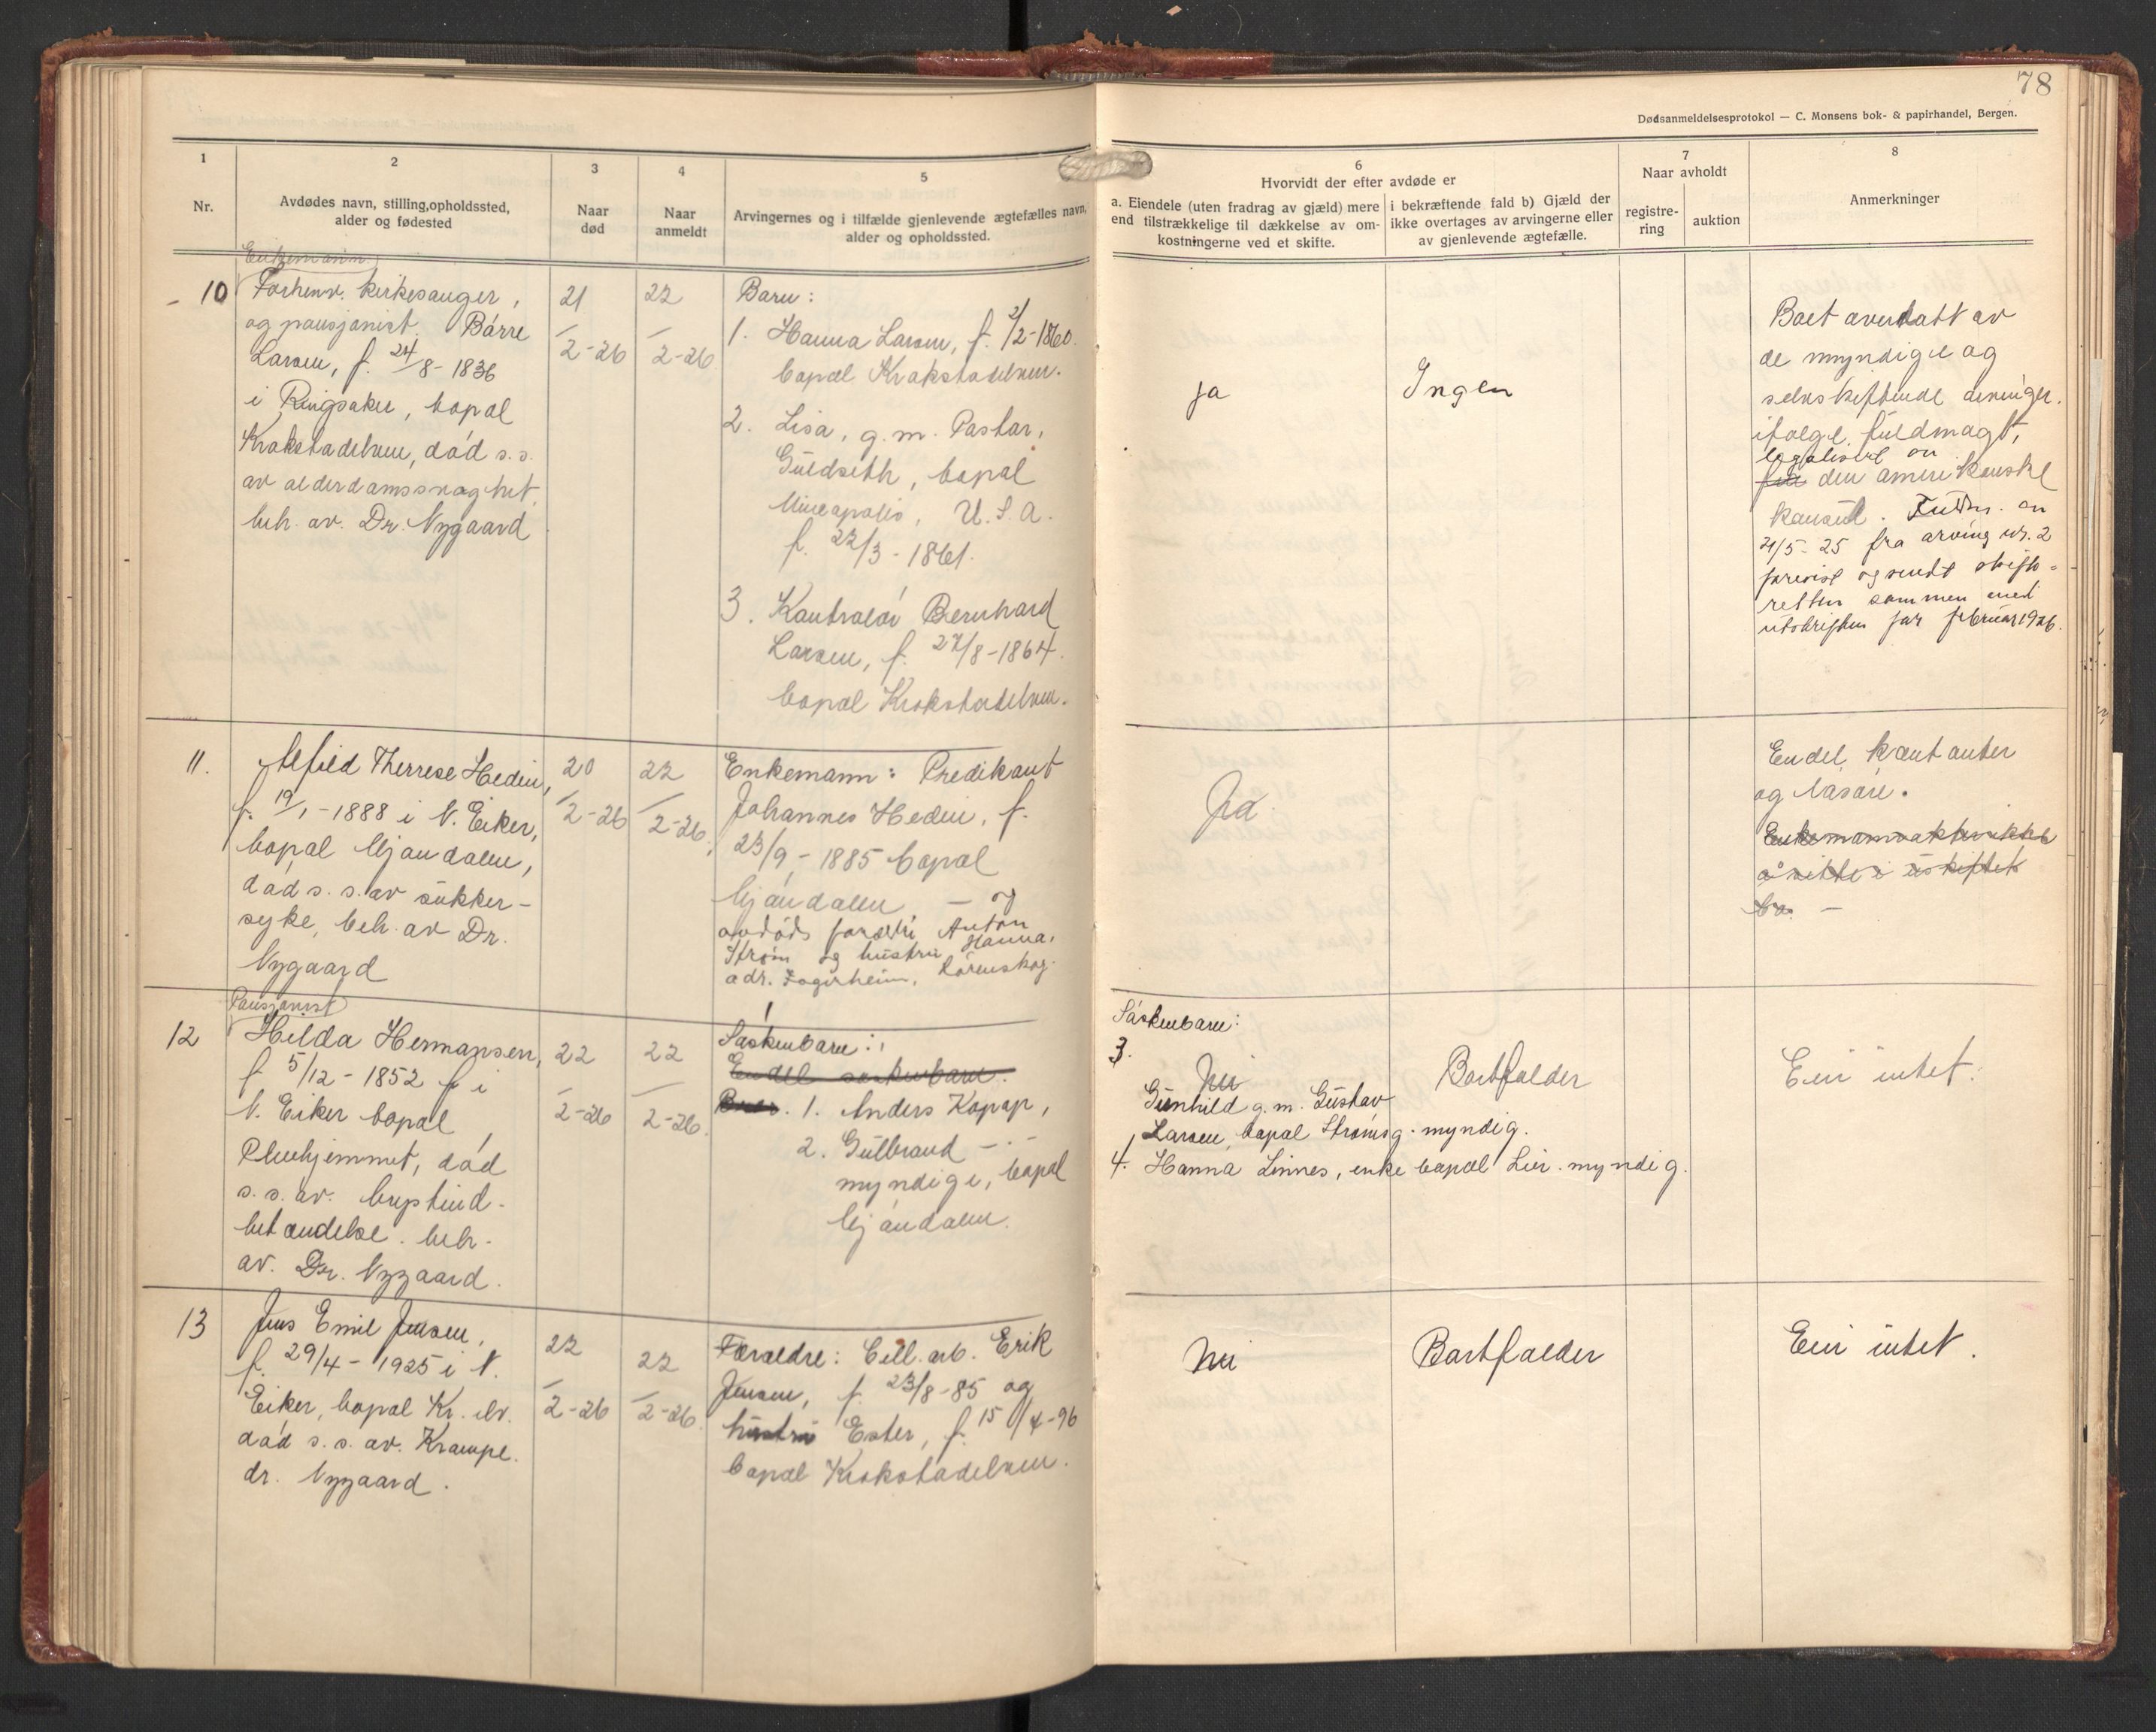 78
Dødsanmeldelsesprotokol — C. Monsens bok- & papirhandel, Bergen.
1
Nr.
2
Avdødes navn, stilling, opholdssted,
alder og fødested
3
Naar
død
4
Naar
anmeldt
5
Arvingernes og i tilfælde gjenlevende ægtefælles navn,
alder og opholdssted.
6
Hvorvidt der efter avdøde er
a. Eiendele (uten fradrag av gjæld) mere
end tilstrækkelige til dækkelse av om-
kostningerne ved et skifte.
i bekræftende fald b) Gjæld der
ikke overtages av arvingerne eller
av gjenlevende ægtefælle.
7
Naar avholdt
registre-
ring
auktion
8
Anmerkninger
10
Enkemann.
Forhenv. kirkesanger,
og pensjonist. Børre
Larsen, f. 24/8-1836
i Ringsaker, bopæl
Krokstadelven, død s.s.
av alderdomssvaghet,
beh. av. Dr. Nygaard
21/2-26
22/2-26
Barn:
1. Hanna Larsen, f. 2/2-1860.
bopæl Krokstadelven.
2. Lisa, g.m. Pastor,
Guldseth, bopæl
Mineapolis, U.S.A.
f. 22/3-1861.
3. Kontrolør Bernhard
Larsen, f. 27/8-1864.
bopæl Krokstadelven.
ja
Ingen
Boet overdatt av
de myndige og
selvskiftende arvinger.
ifølge fuldmagt,
legalisert av
den amerikanske
konsul. Fuldm. av
21/5-25 fra arving nr. 2
forevist og sendt skifte-
retten sammen med
utskriften for februar 1926.
11.
Alfild Therrese Hedin,
f. 19/1-1888 i N. Eiker,
bopæl Mjøndalen,
død s.s. av sukker-
syke, beh. av Dr.
Nygaard
20/2-26
22/2-26
Enkemann: Predikant
Johannes Hedin, f.
23/9-1885 bopæl
Mjøndalen — og
avdøds foreldre Anton
Strøm og hustru Hanna,
adr. Fagerheim, Lørenskog.
Ja
Endel kontanter
og løsøre.
Enkemann akter ikke
å sitte i uskiftet
bo. —
12
Pensjonist
Hilda Hermansen,
f. 5/12-1852 f i
N. Eiker bopæl
Pleiehjemmet, død
s.s. av. brystind-
betændelse. beh.
av. Dr. Nygaard.
22/2-26
22/2-26
Søskenbarn:
Endel søskenbarn.
1. Anders Kopap,
2. Gulbrand — " —
myndige, bopæl
Mjøndalen.
Søskenbarn:
3.
Nei
Gunhild g.m. Gustav
Larsen, bopæl Strømsg. myndig.
4. Hanna Linnes, enke bopæl Lier. myndig.
Bortfalder
Eier intet.
13
Jens Emil Jensen,
f. 29/4-1925 i N.
Eiker, bopæl Kr. elv.
død s.s. av. Krampe.
dr. Nygaard.
22/2-26
22/2-26
Foreldre: Cell. arb. Erik
Jensen, f. 23/8-85 og
hustru Ester, f. 15/4-96
bopæl Krokstadelven.
Nei
Bortfalder
Eier intet.